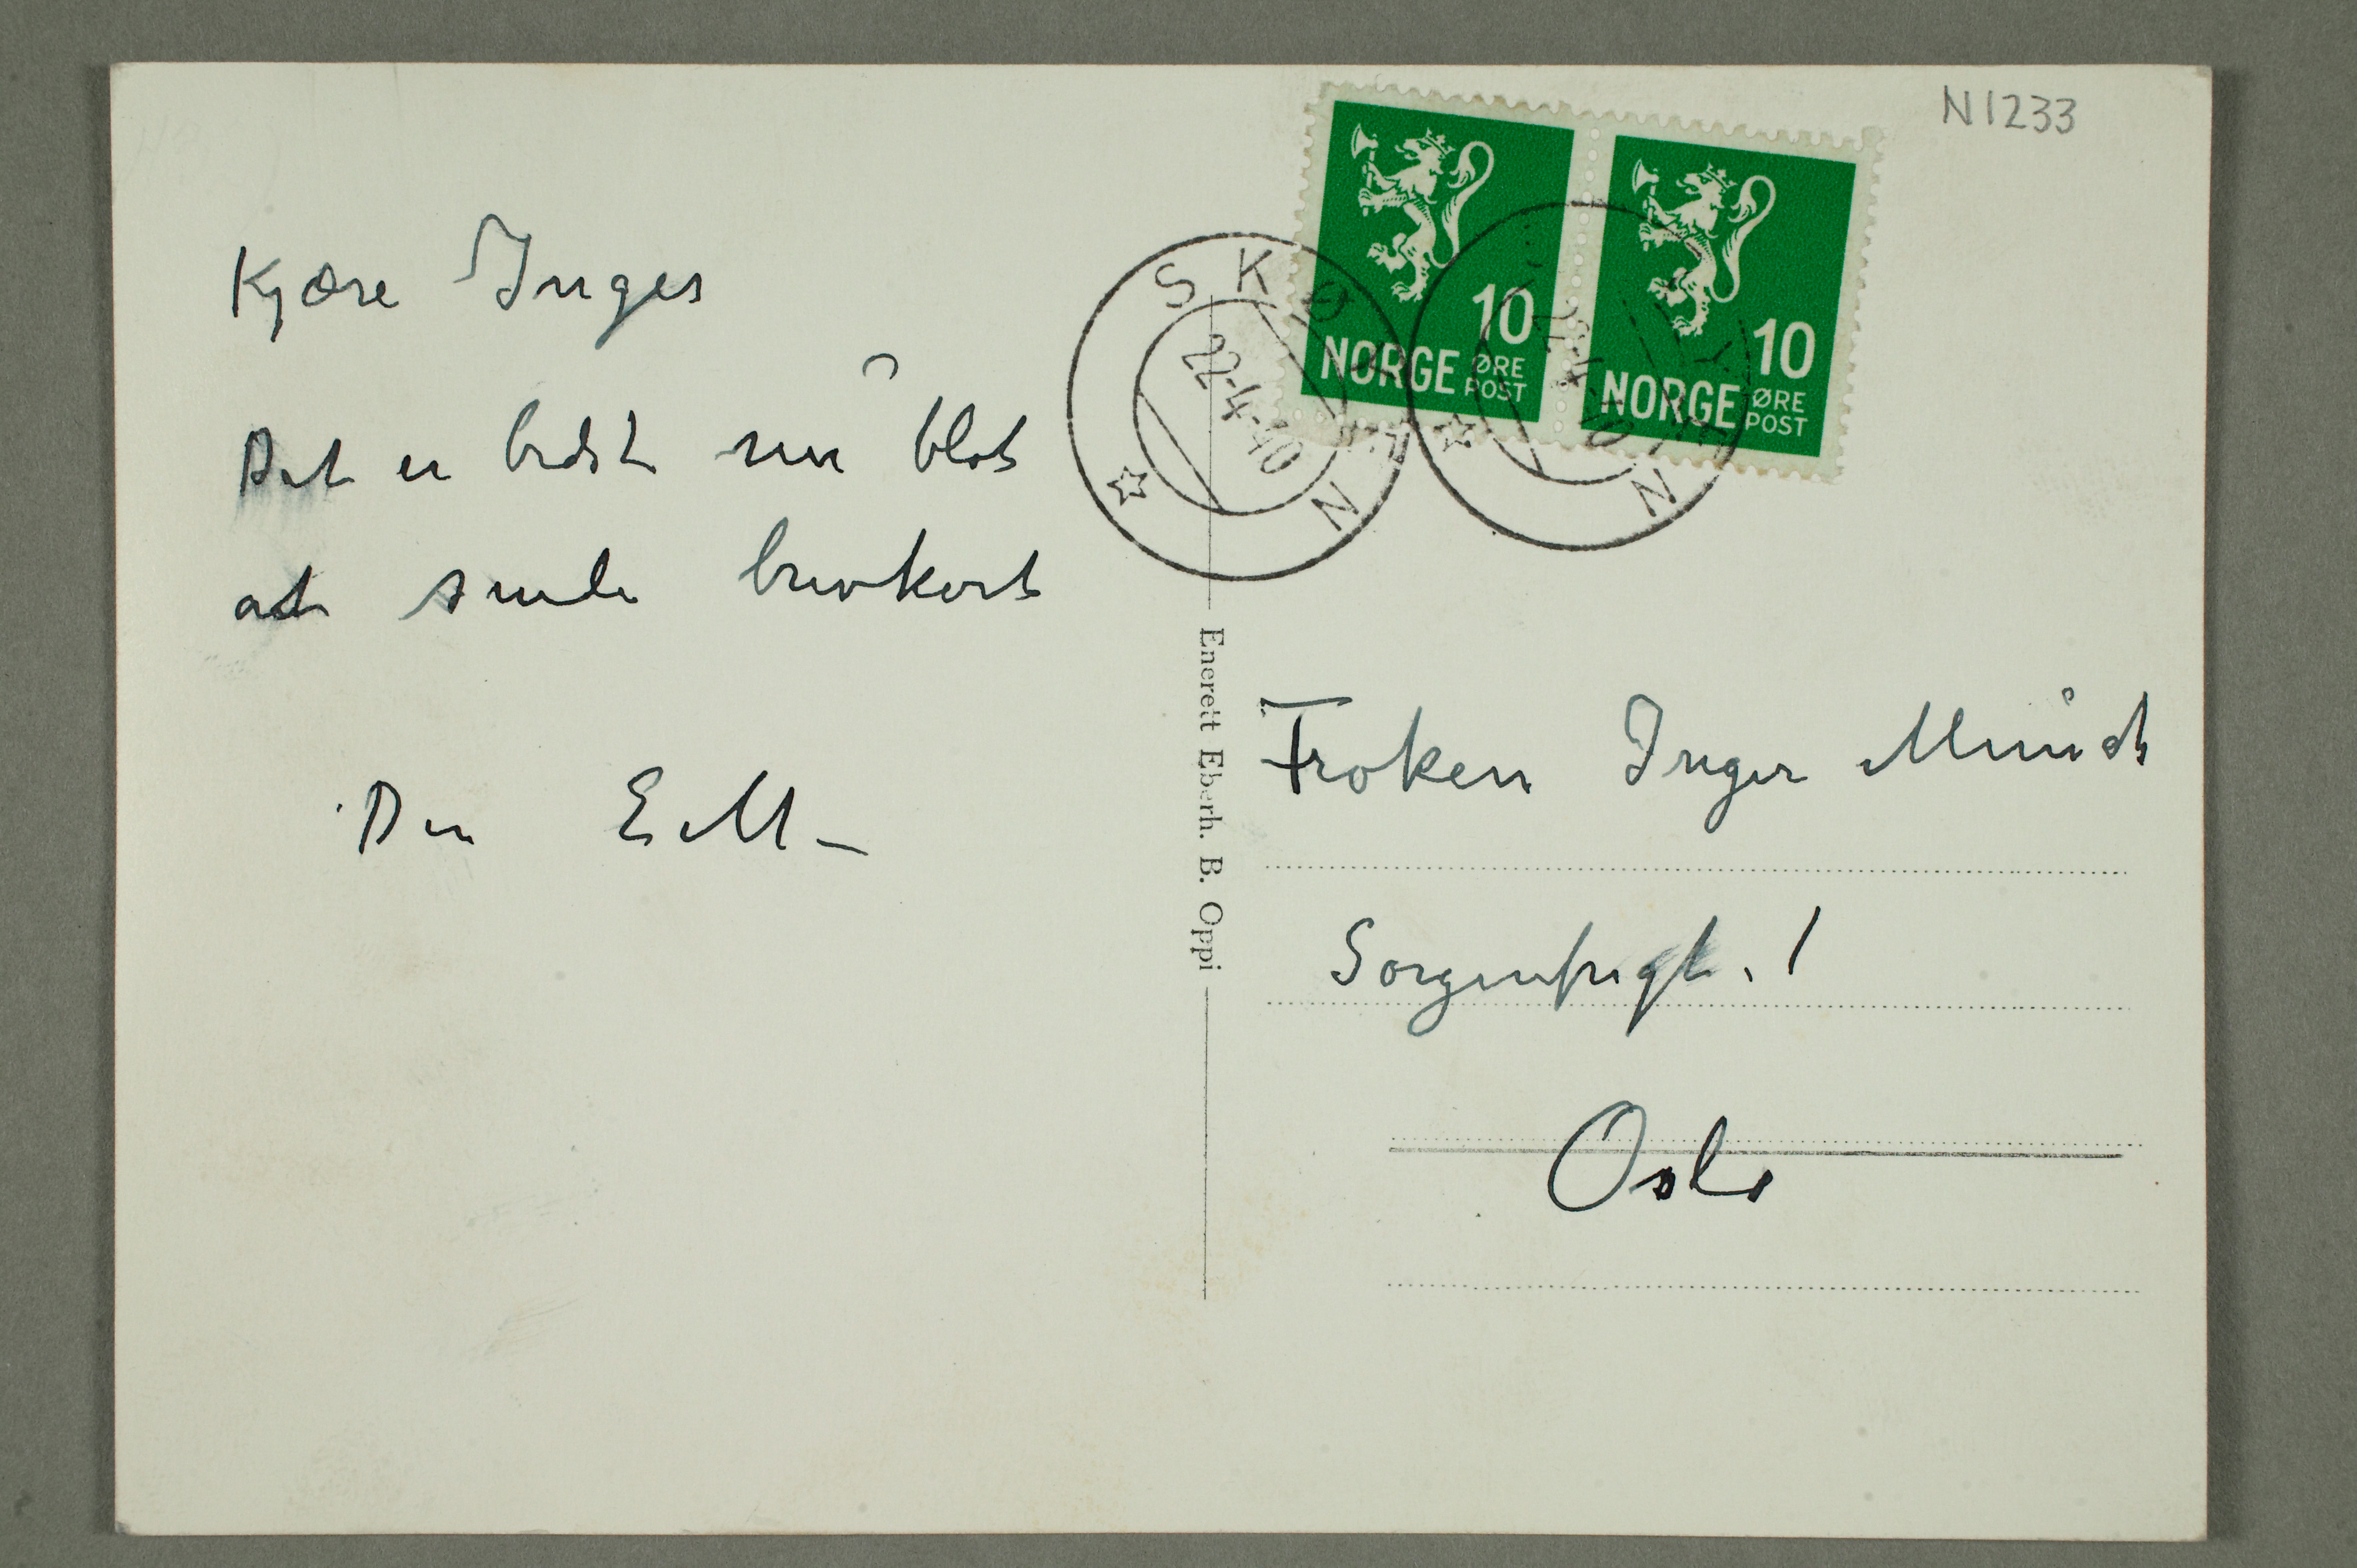 Kjære Inger
Det er bedst nu blot
at sende brevkort
Din E M –
N1233
NORGE 10 ØRE POST
NORGE 10 ØRE POST
SKØYEN
22-4-40
22-4-40
Enerett Eberh. B. Oppi
Frøken Inger Munch
Sorgenfrigt. 1
Oslo